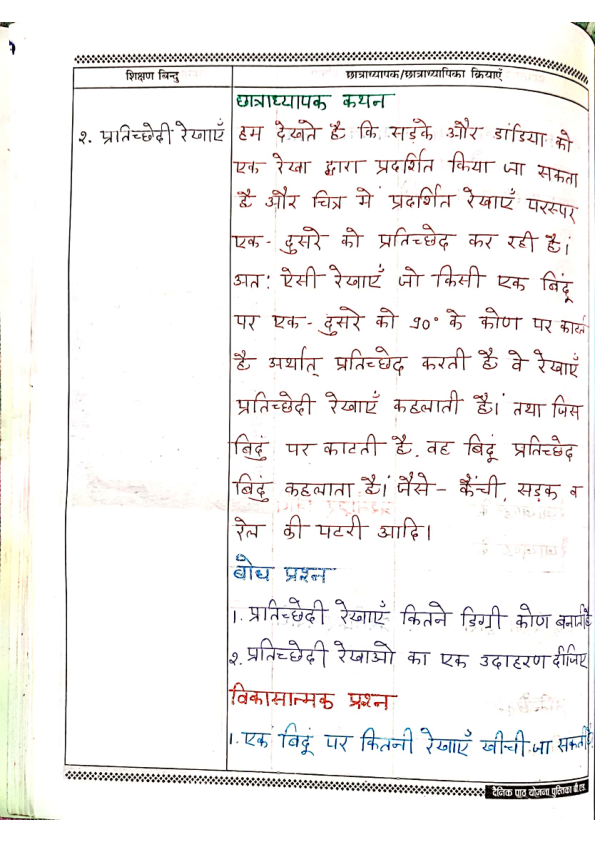 शिक्षण बिन्दु
छात्राध्यापक/छात्राध्यापिका क्रियाएँ
छात्राध्यापक कथन
२. प्रतिच्छेदी रेखाएँ
हम देखते है कि सड़के और डांडिया को
एक रेखा द्वारा प्रदर्शित किया जा सकता
है और चित्र में प्रदर्शित रेखाएँ परस्पर
एक - दुसरे को प्रतिच्छेद कर रही है।
अतः ऐसी रेखाएँ जो किसी एक बिंदू
पर एक - दुसरे को ९०° के कोण पर काटती
है अर्थात् प्रतिच्छेद करती है वे रेखाएँ
प्रतिच्छेदी रेखाएँ कहलाती है। तथा जिस
बिदुं पर काटती है, वह बिदूं प्रतिच्छेद
बिदुं कहलाता है। जैसे - कैंची, सड़क व
रेल की पटरी आदि।
बोध प्रश्न
1. प्रतिच्छेदी रेखाएँ कितने डिग्री कोण बनाती है
२. प्रतिच्छेदी रेखाओ का एक उदाहरण दीजिए
विकासात्मक प्रश्न
1. एक बिदुं पर कितनी रेखाएँ खीची जा सकती है
दैनिक पाठ योजना पुस्तिका बी.एड.